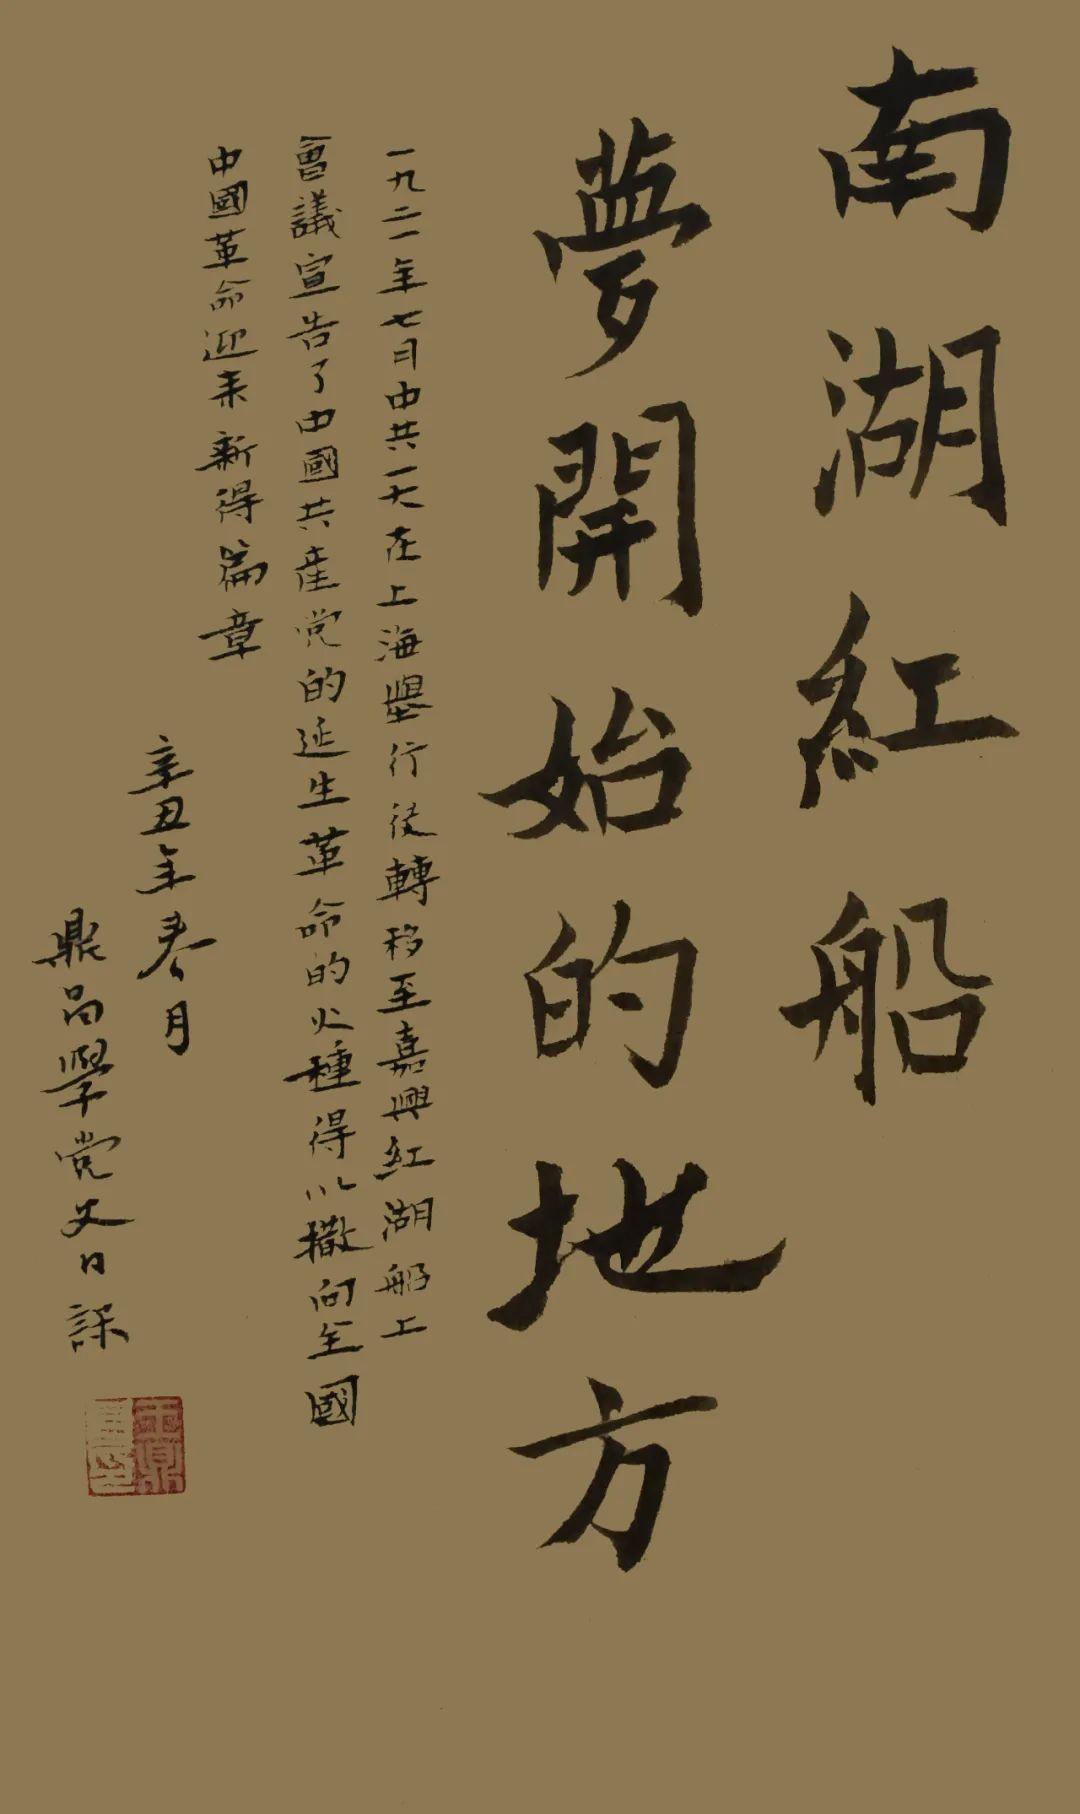 南湖紅船
夢開始的地方
一九二一年七月中共一大在上海舉行後轉移至嘉興紅湖船上
會議宣告了中國共産党的延生革命的火種得以撒向全國
中國革命迎来新得篇章
辛丑年春月
鼎昌學党史日課